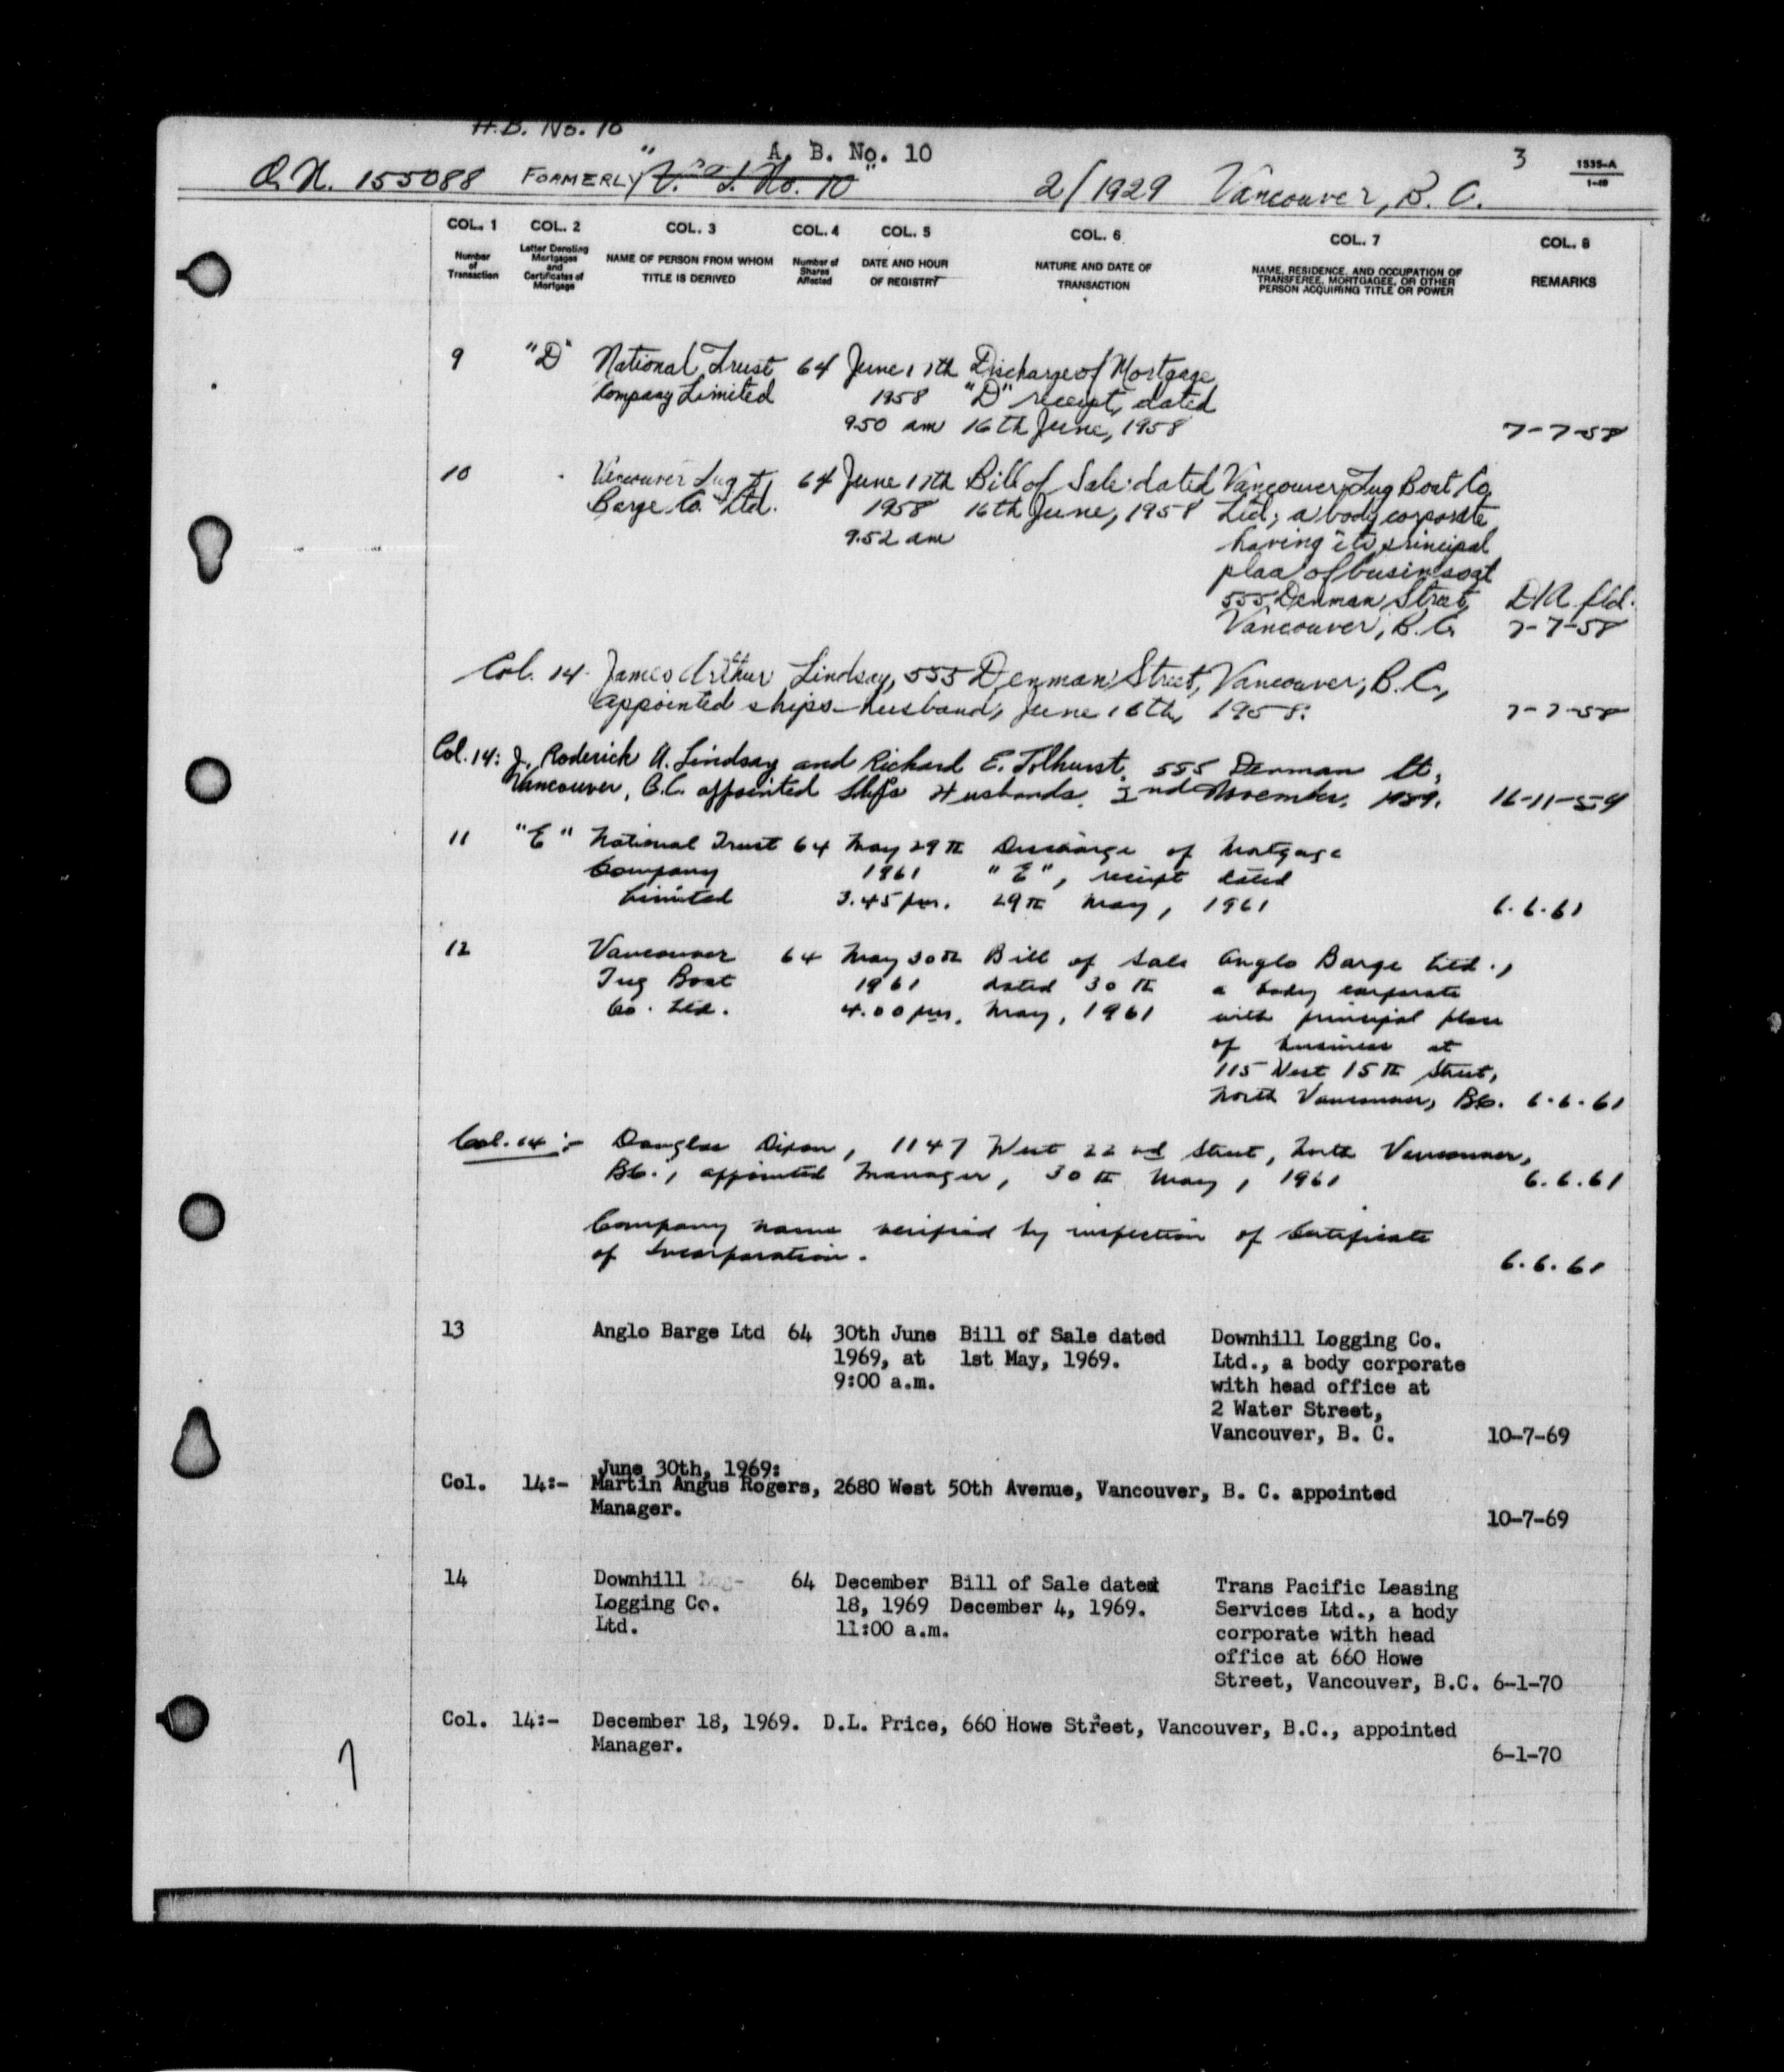 A.B. No. 10
A. B. No. 10
O.N. 155088 FORMERLY "V. T. No. 10" 2/1929 Vancouver, B. C. 3 1535-A
COL. 1 COL. 2 COL. 3 COL. 4 COL. 5 COL. 6 COL. 7 COL. 8
Number of Transaction
Letter Denoting Mortgages and Certificates of Mortgage
NAME OF PERSON FROM WHOM TITLE IS DERIVED
Number of Shares Affected
DATE AND HOUR OF REGISTRY
NATURE AND DATE OF TRANSACTION
NAME, RESIDENCE, AND OCCUPATION OF TRANSFEREE, MORTGAGEE, OR OTHER PERSON ACQUIRING TITLE OR POWER
REMARKS
9 "D" National Trust 64 June 17th Discharge of Mortgage
Company Limited 1958 "D" receipt dated
9.50 am 16th June, 1958 7-7-58
10 Vancouver Tug & 64 June 17th Bill of Sale dated Vancouver Tug Boat Co.
Barge Co. Ltd. 1958 16th June, 1958 Ltd., a body corporate
9.52 am having its principal
place of business at
555 Denman Street D/A fld.
Vancouver, B.C. 7-7-58
Col. 14. James Arthur Lindsay, 555 Denman Street, Vancouver, B.C.,
appointed ships-husband, June 16th, 1958. 7-7-58
Col. 14: J. Roderick A. Lindsay and Richard E. Tolhurst, 555 Denman St,
Vancouver, B.C. appointed Ship's Husbands. 2nd November, 1959. 16-11-59
11 "E" National Trust 64 May 29th Discharge of Mortgage
Company 1961 "E", receipt dated
Limited 3.45 pm. 29th May, 1961 6.6.61
12 Vancouver 64 May 30th Bill of Sale Anglo Barge Ltd.,
Tug Boat 1961 dated 30th a body corporate
Co. Ltd. 4.00 pm. May, 1961 with principal place
of business at
115 West 15th Street,
North Vancouver, BC. 6.6.61
Col. 14:- Douglas Dixon, 1147 West 22nd Street, North Vancouver,
BC., appointed Manager, 30th May, 1961 6.6.61
Company name verified by inspection of Certificate
of Incorporation. 6.6.61
13 Anglo Barge Ltd 64 30th June Bill of Sale dated Downhill Logging Co.
1969, at 1st May, 1969. Ltd., a body corporate
9:00 a.m. with head office at
2 Water Street,
Vancouver, B. C. 10-7-69
June 30th, 1969:
Col. 14:- Martin Angus Rogers, 2680 West 50th Avenue, Vancouver, B. C. appointed
Manager. 10-7-69
14 Downhill 64 December Bill of Sale dated Trans Pacific Leasing
Logging Co. 18, 1969 December 4, 1969. Services Ltd., a body
Ltd. 11:00 a.m. corporate with head
office at 660 Howe
Street, Vancouver, B.C. 6-1-70
Col. 14:- December 18, 1969. D.L. Price, 660 Howe Street, Vancouver, B.C., appointed
Manager. 6-1-70